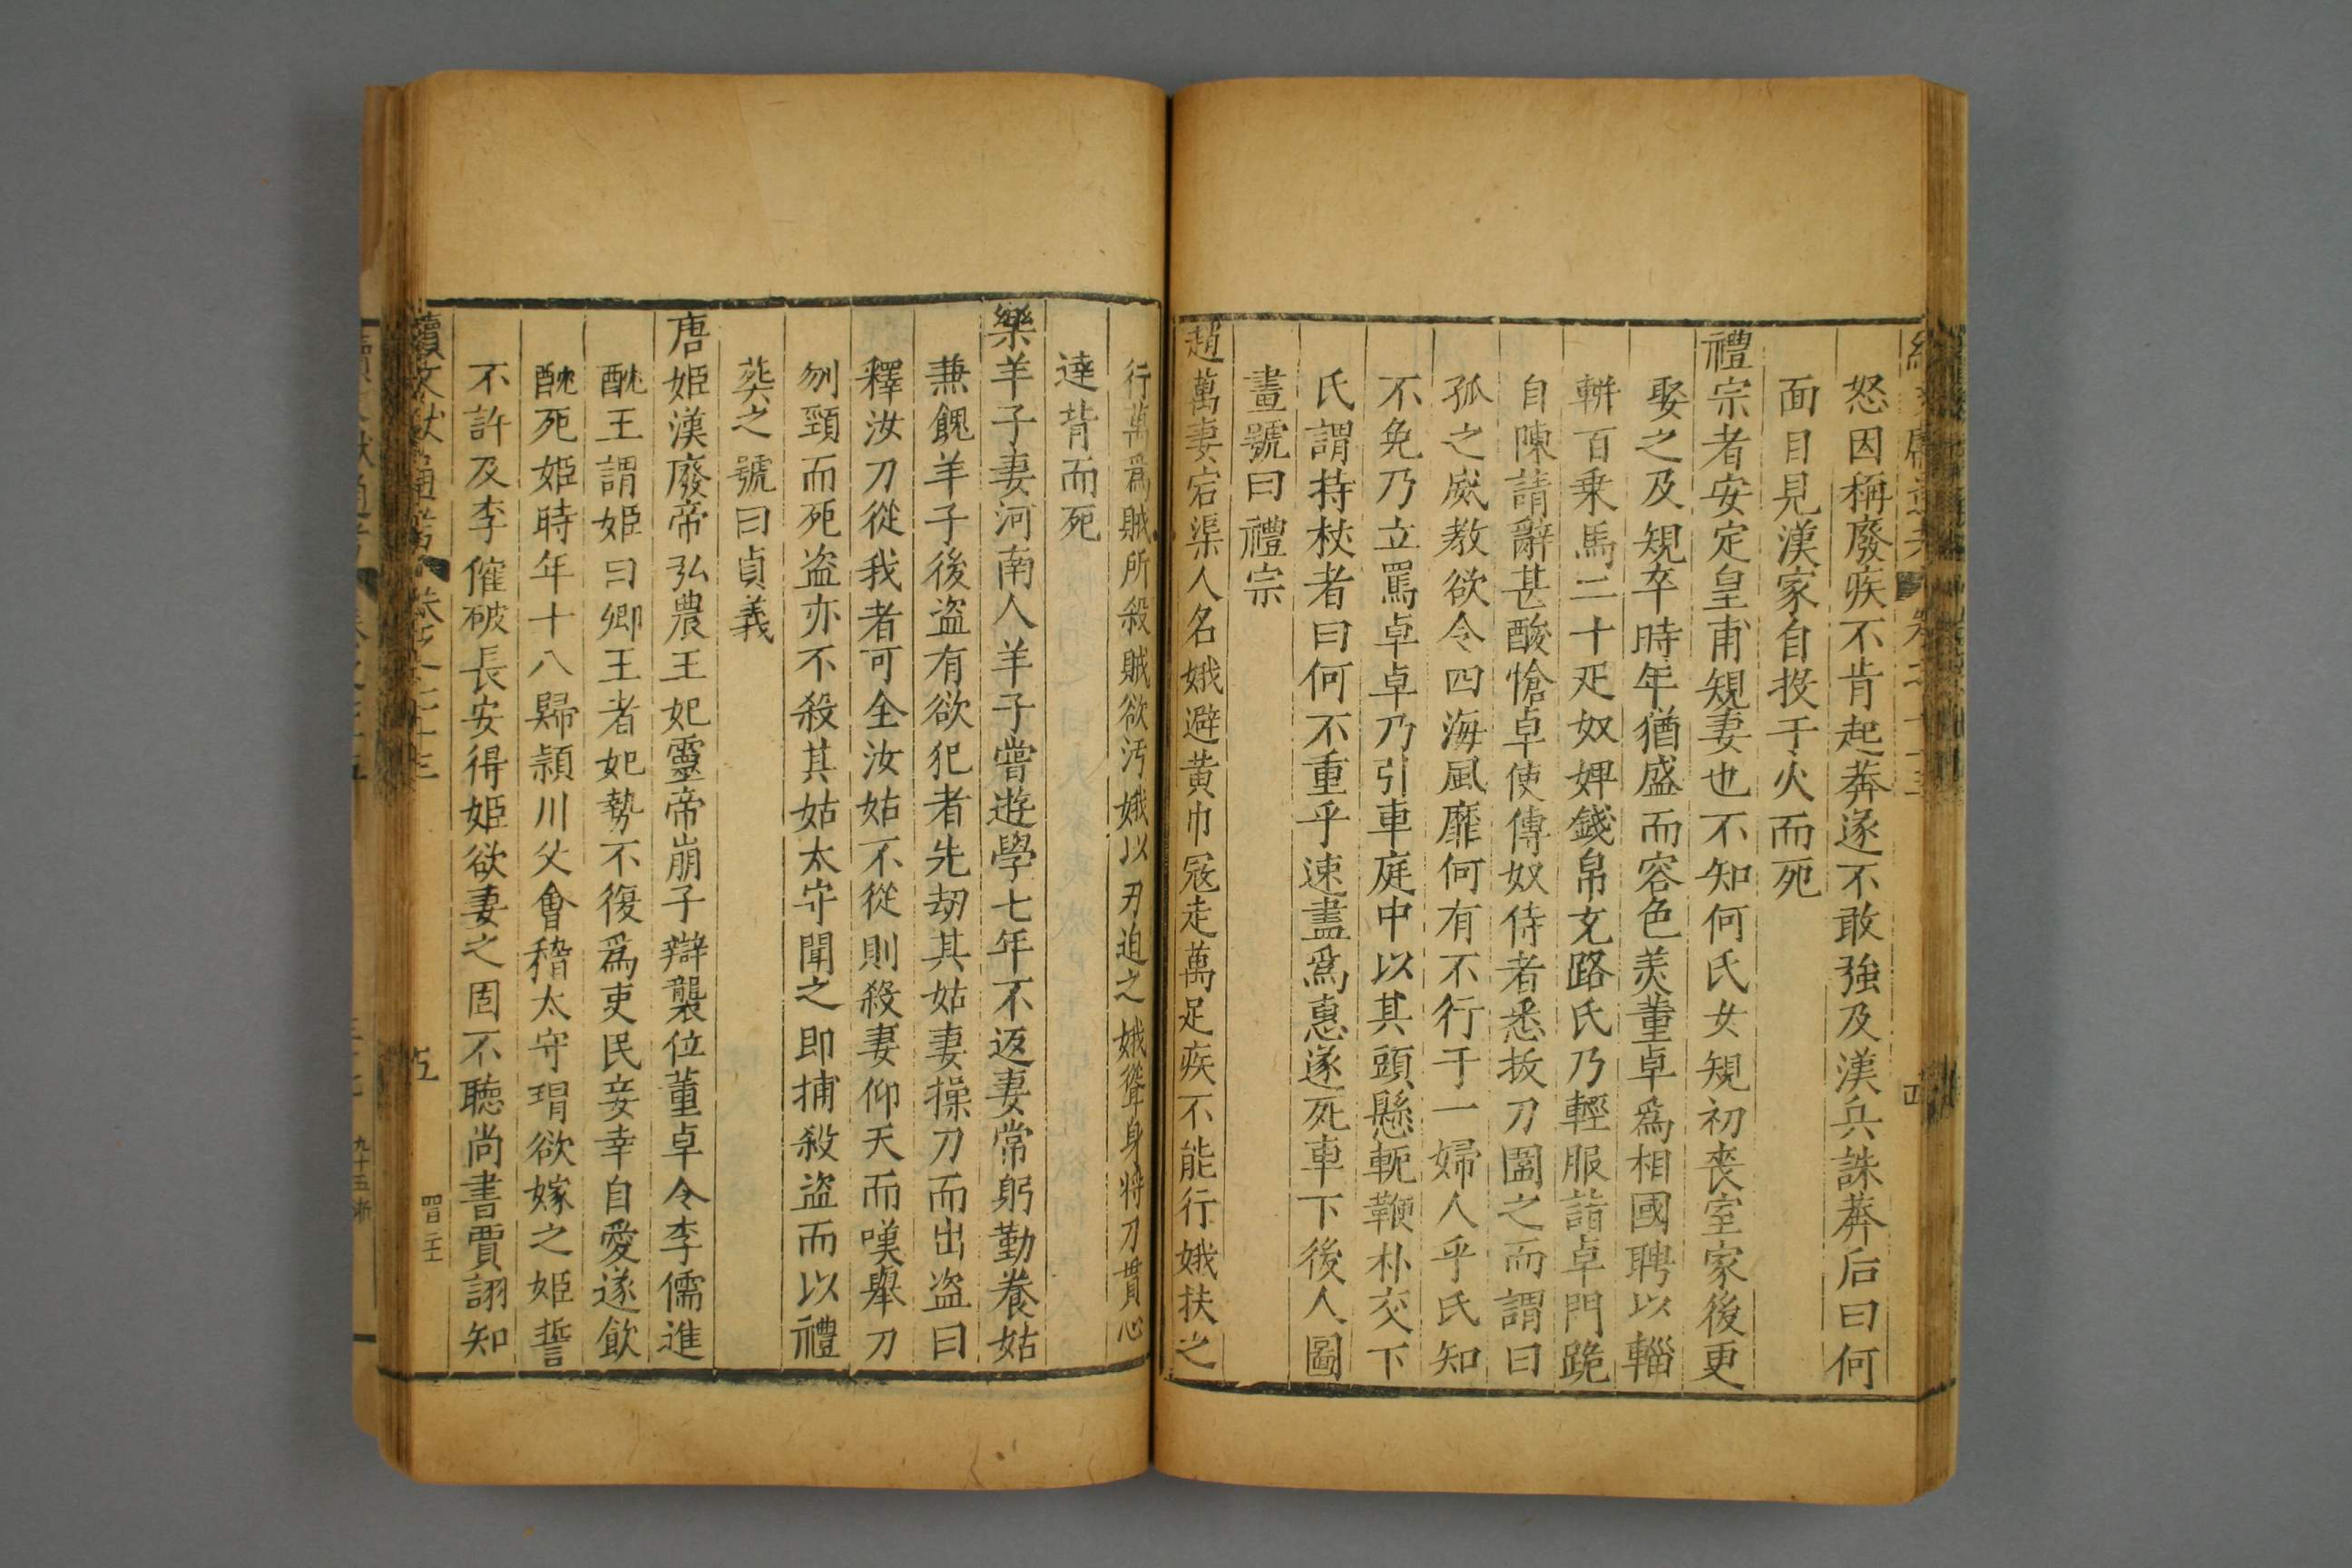 怒因稱廢疾不肯起莽遂不敢強及漢兵誅莽后曰何
面目見漢家自投于火而死
禮宗者安定皇甫規妻也不知何氏女規初喪室家後更
娶之及規卒時年猶盛而容色美董卓爲相國聘以輜
軿百乘馬二十疋奴婢錢帛充路氏乃輕服詣卓門跪
自陳請辭甚酸愴卓使傅奴侍者悉拔刀圍之而謂曰
孤之威教欲令四海風靡何有不行于一婦人乎氏知
不免乃立罵卓卓乃引車庭中以其頭懸軛鞭朴交下
氏謂持杖者曰何不重乎速盡爲惠遂死車下後人圖
畫號曰禮宗
趙萬妻宕渠人名娥避黃巾宼走萬足疾不能行娥扶之
行萬爲賊所殺賊欲汚娥以刃迫之娥聳身將刀貫心
達背而死
樂羊子妻河南人羊子嘗遊學七年不返妻常躬勤養姑
兼餽羊子後盜有欲犯者先刼其姑妻操刀而出盜曰
釋汝刀從我者可全汝姑不從則殺妻仰天而嘆舉刀
刎頸而死盜亦不殺其姑太守聞之即捕殺盜而以禮
葬之號曰貞義
唐姬漢廢帝弘農王妃靈帝崩子辯襲位董卓令李儒進
酖王謂姬曰卿王者妃勢不復爲吏民妾幸自愛遂飲
酖死姬時年十八歸潁川父會稽太守瑁欲嫁之姬誓
不許及李傕破長安得姬欲妻之固不聽尚書賈詡知
續文獻通考
五